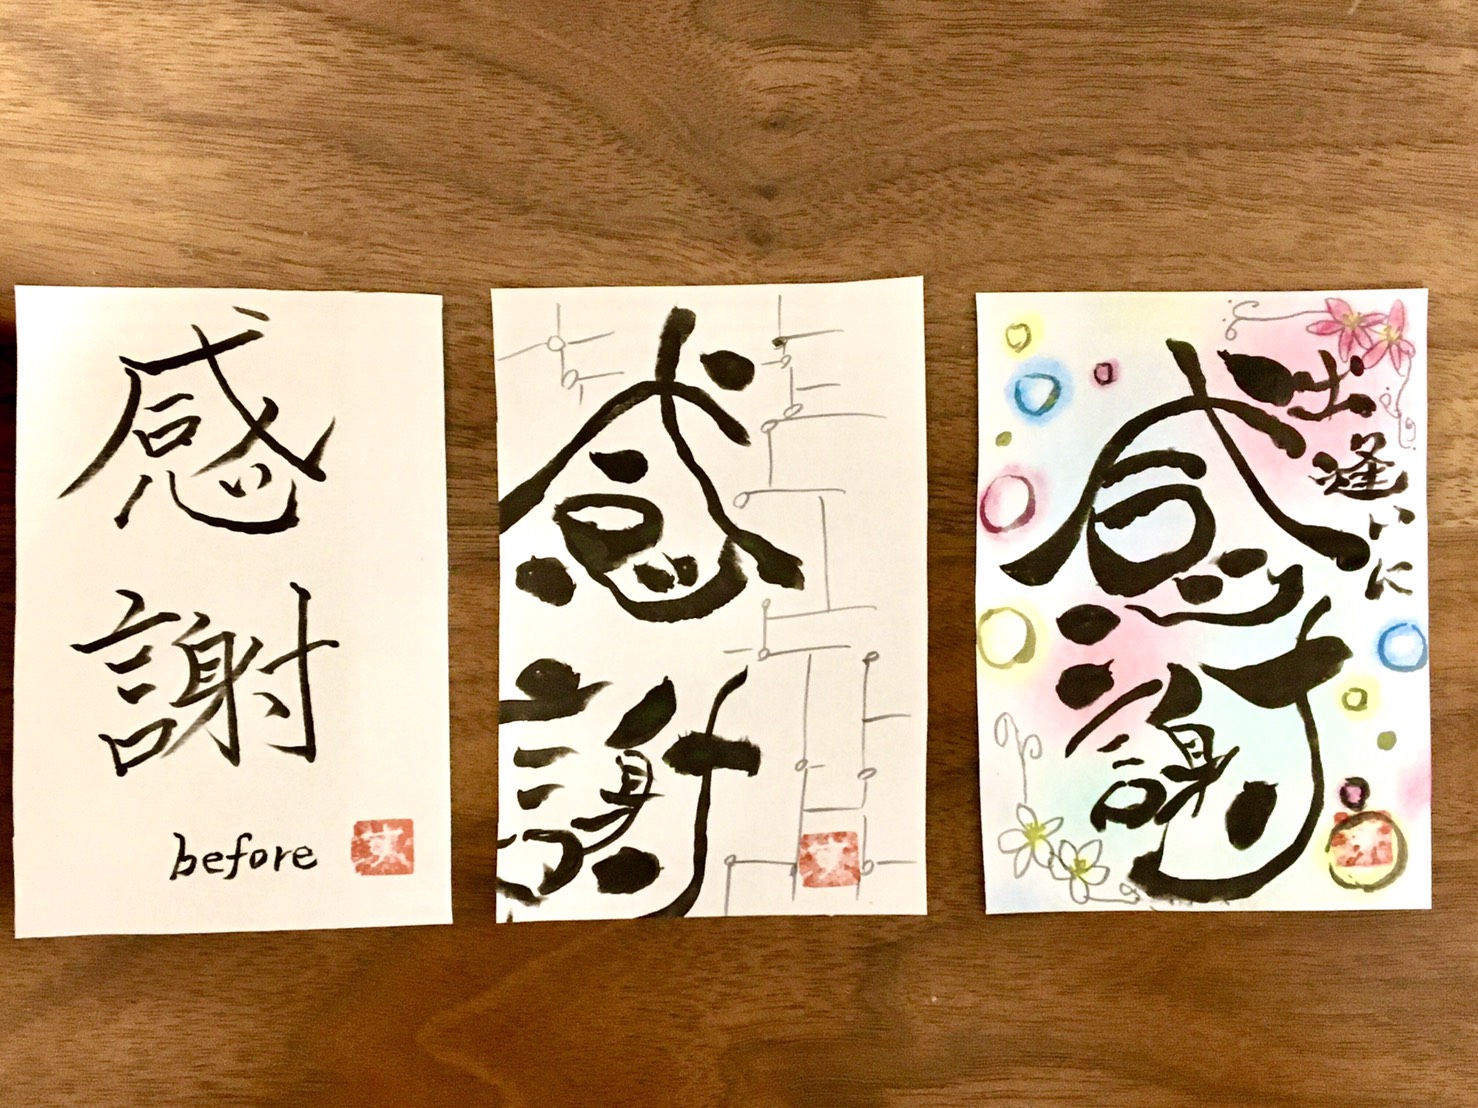 感謝
before
す
感謝
す
出逢いに
感謝